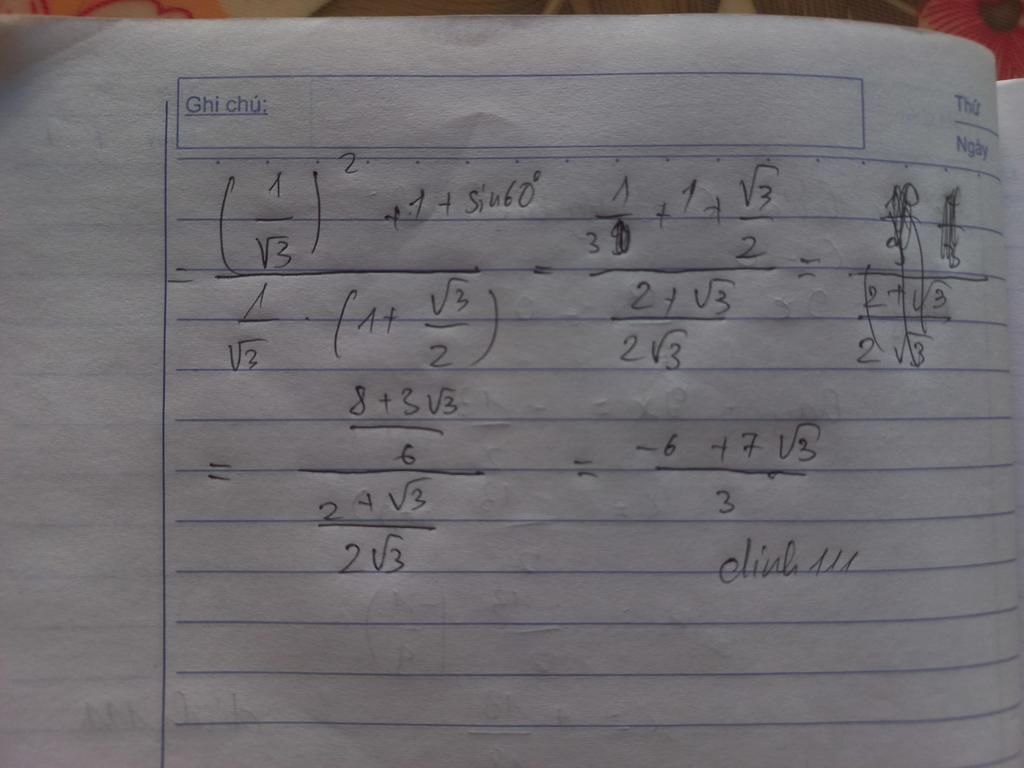 Ghi chú:
Thứ
Ngày
= ((1/√3)² + 1 + sin60°) / (1/√3 · (1 + √3/2)) = (1/3 + 1 + √3/2) / ((2 + √3)/(2√3)) = / ((2 + √3)/(2√3))
= ((8 + 3√3)/6) / ((2 + √3)/(2√3)) = (-6 + 7√3)/3